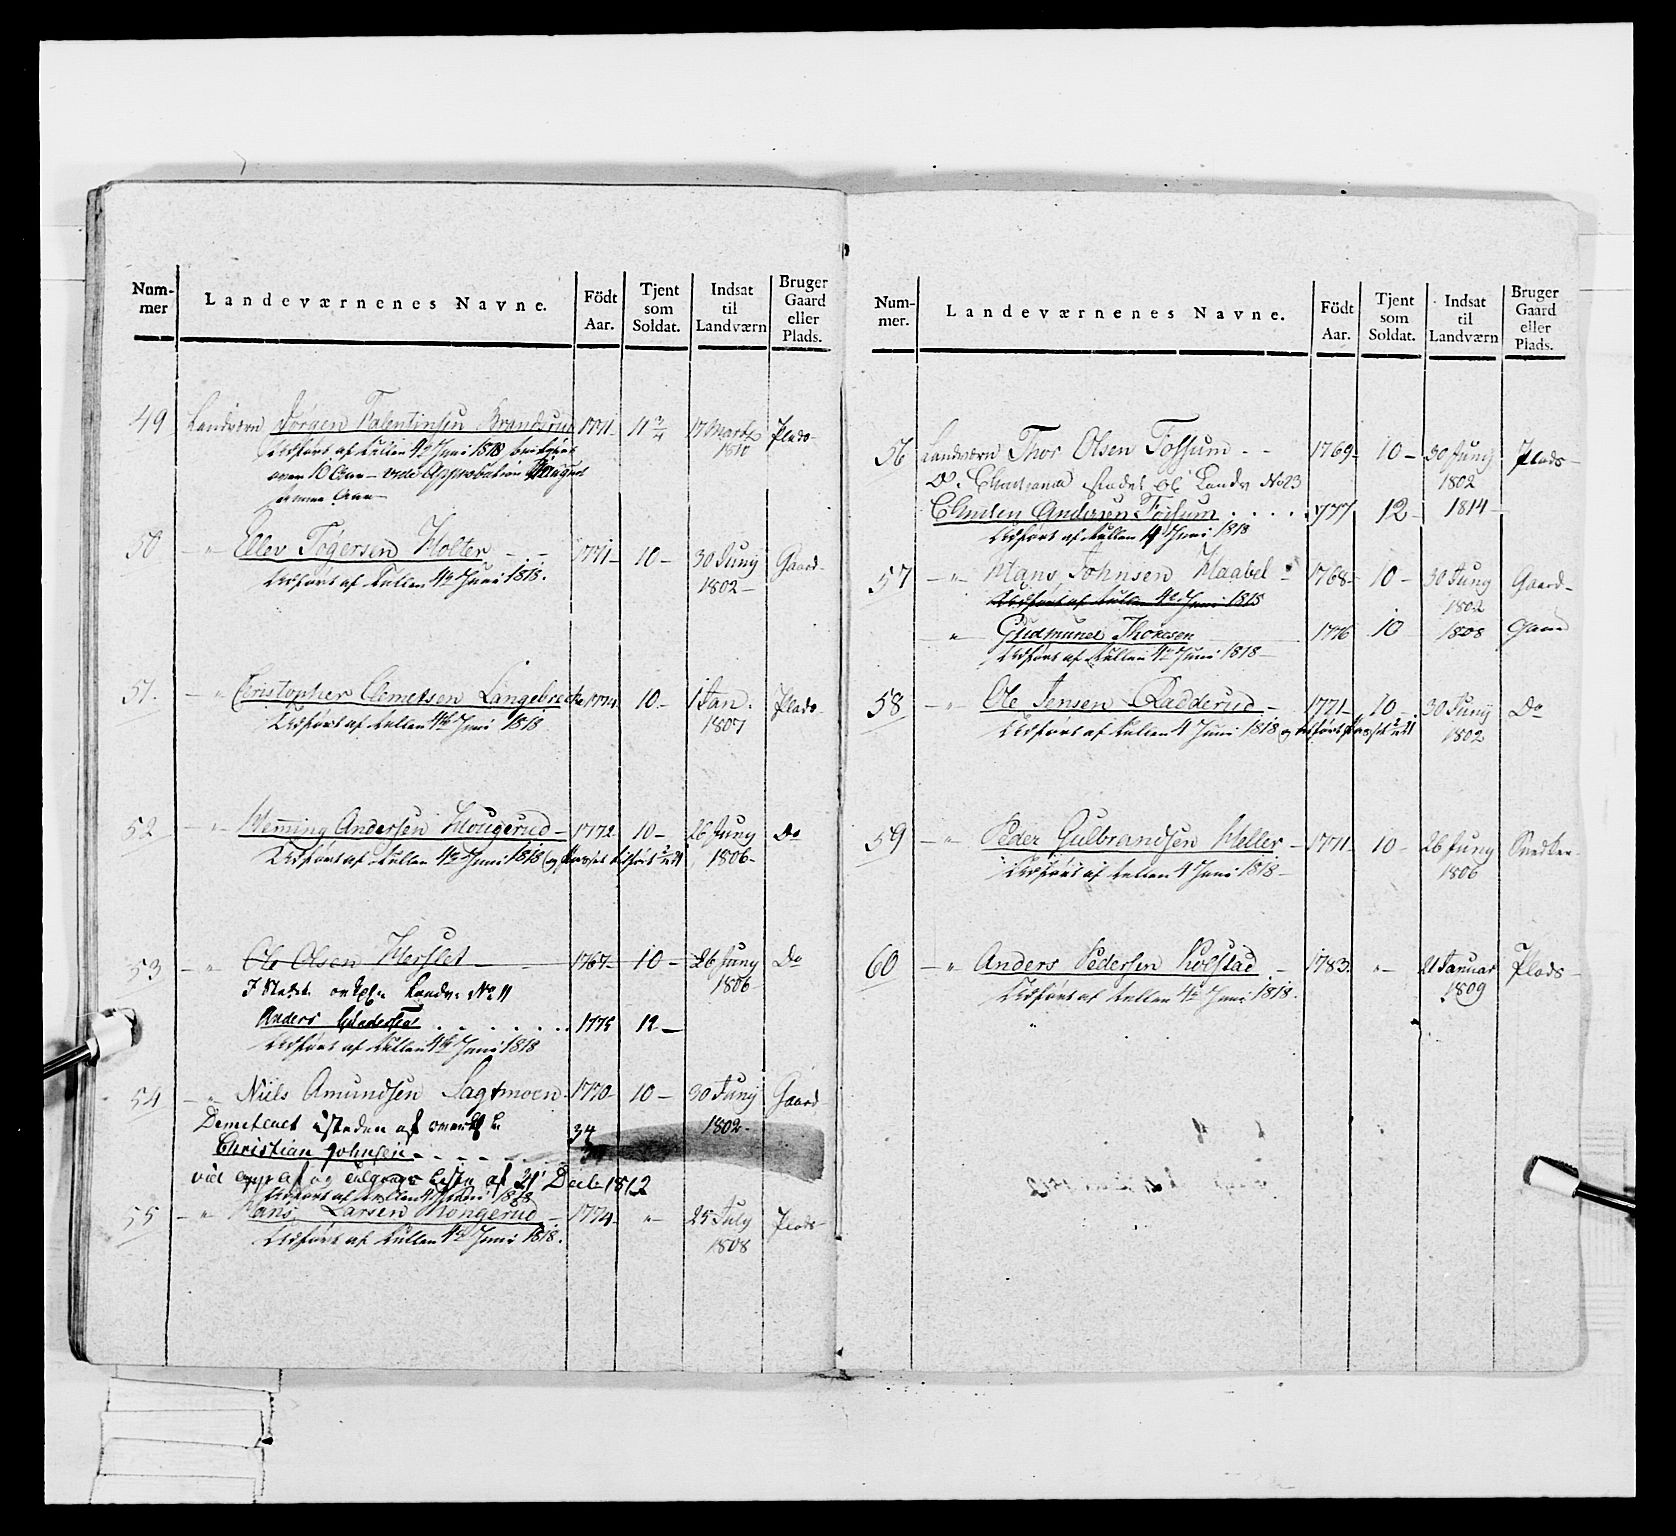 Num-
mer
Landeværnenes Navne.
Födt
Aar.
Tjent
som
Soldat.
Indsat
til
Landværn
Bruger
Gaard
eller
Plads.
49 Landværn Jørgen Valentinsen Branderud 1771 11 3/4 17 Marts Plads
1810
Udført af Rullen 4de Juni 1818
over 10 Aar
50 — " Ellev Togersen Holter — 1771 10 — 30 Juny Gaard
Udført af Rullen 4de Juni 1818. 1802 —
51. — " Christopher Clemetsen Langebrecke 1774 10 — 1 Jan. Plads
Udført af Rullen 4de Juni 1818 1807
52 — " Henning Andersen Hougerud — 1772 10 — 26 Juny Do
Udført af Rullen 4de Juni 1818 og Passet udført 1806 —
53 — " Ole Olsen Herslet — 1767 10 — 26 Juny Do
I Stedet Landv. No 11 1806
Anders Gundersen . . . . . . 1775 12 —
Udført af Rullen 4de Juni 1818
54 — " Niels Amundsen Sagtmoen 1770 10 — 30 Juny Gaard
isteden af 34 1802 —
Christian Johnsen . . . .
af 21 Decbr 1812
Udført af Rullen 4de Juni 1818
55 — " Hans Larsen Kongerud — 1774 " 25 July Plads
Udført af Rullen 4de Juni 1818. 1808
Num-
mer.
Landeværnenes Navne.
Födt
Aar.
Tjent
som
Soldat.
Indsat
til
Landværn
Bruger
Gaard
eller
Plads.
56 Landværn Thor Olsen Fossum - - 1769 10 — 30 Juny Plads
stadet Landv No 23 1802
Andersen Fossum . . . . 1777 12 — 1814
Udført af Rullen 4 Juni 1818
57 — " Hans Johnsen Haabel 1768 10 — 30 Juny Gaard
Udført af Rullen 4de Juni 1818 1802
" Gudmund Thoresen 1776 10 1808 Gaard
Udført af Rullen 4de Juni 1818 —
58 — " Ole Jensen Radderud — 1771 10 — 30 Juny Do
Udført af Rullen 4 Juni 1818 og udført Passet 1802
59 — " Peder Gulbrandsen Heller — 1771 10 — 26 Juny Snedker
Udført af Rullen 4 Juni 1818 — 1806
60 — " Anders Pedersen Kolstad — 1783 " 21 Januar Plads
Udført af Rullen 4de Juni 1818. 1809